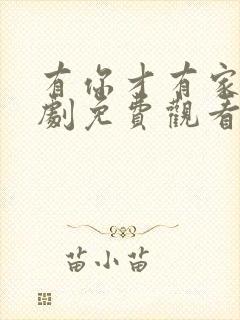 有你才有家
劇免費觀看
苗小苗